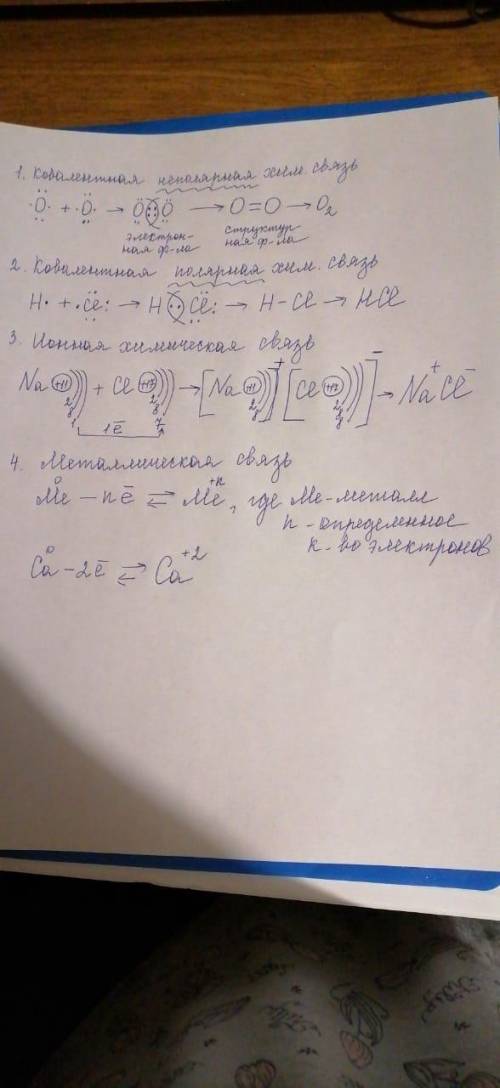 1. Ковалентная неполярная хим. связь
·Ö· + ·Ö· → Ö(::)Ö → O=O → O₂
электрон- структур
ная ф-ла ная ф-ла
2. Ковалентная полярная хим. связь
H· + ·Cl: → H(:)Cl: → H-Cl → HCl
3. Ионная химическая связь
Na(+11))) + Cl(+17))) → [Na(+11))]⁺ [Cl(+17)))]⁻ → Na⁺Cl⁻
2 8 1 2 8 7 2 8 2 8
1ē
4. Металлическая связь
Me⁰ - nē ⇄ Me⁺ⁿ, где Me-металл
n - определенное
к-во электронов
Ca⁰ - 2ē ⇄ Ca⁺²